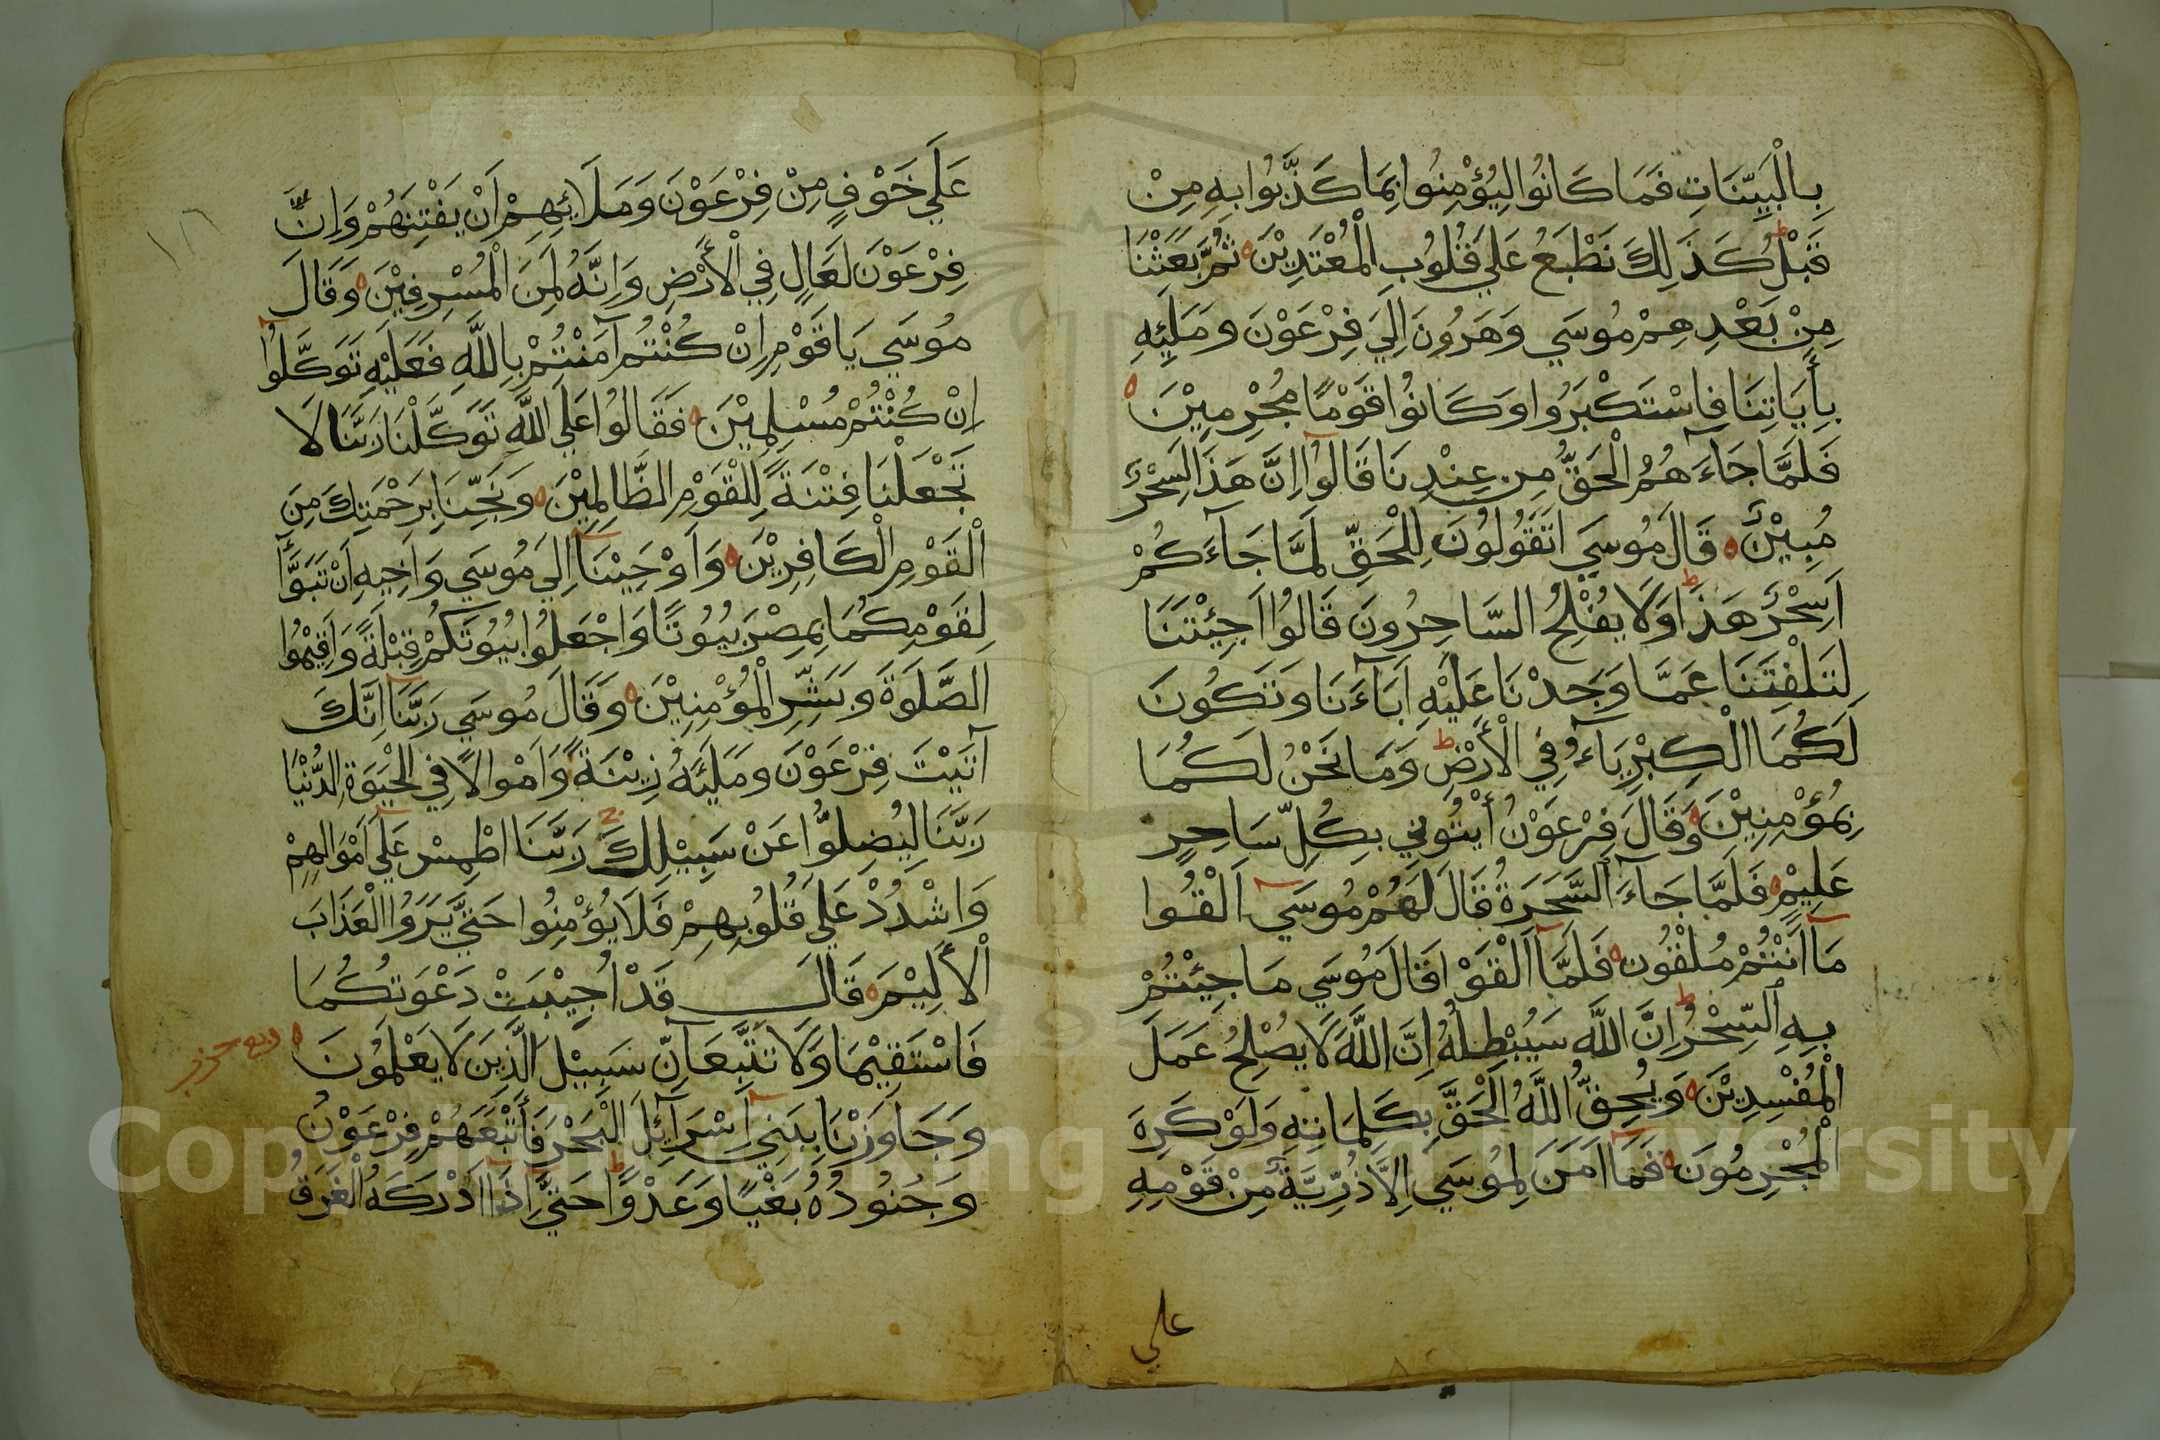 بِالْبَيِّنَاتِ فَمَا كَانُوا لِيُؤْمِنُوا بِمَا كَذَّبُوا بِهِ مِنْ
قَبْلُ كَذَلِكَ نَطْبَعُ عَلَي قُلُوبِ الْمُعْتَدِيْنَ ثُمَّ بَعَثْنَا
مِنْ بَعْدِهِمْ مُوسَي وَهَرُونَ اِلَي فِرْعَوْنَ وَمَلَئِهِ
بِأَيَاتِنَا فَاسْتَكْبَرُوا وَكَانُوا قَوْمًا مُجْرِمِيْنَ
فَلَمَّا جَآءَهُمُ الْحَقُّ مِنْ عِنْدِنَا قَالُوٓا اِنَّ هَذَا لَسِحْرٌ
مُبِيْنٌ قَالَ مُوسَي اَتَقُولُونَ لِلْحَقِّ لَمَّا جَآءَكُمْ
اَسِحْرٌ هَذَا وَلَا يُفْلِحُ السَّاحِرُونَ قَالُوا اَجِئْتَنَا
لِتَلْفِتَنَا عَمَّا وَجَدْنَا عَلَيْهِ اَبَآءَنَا وَتَكُونَ
لَكُمَا الْكِبْرِيَآءُ فِي الْأَرْضِ وَمَا نَحْنُ لَكُمَا
بِمُؤْمِنِيْنَ وَقَالَ فِرْعَوْنُ أيْتُونِي بِكُلِّ سَاحِرٍ
عَلِيْمٍ فَلَمَّا جَآءَ السَّحَرَةُ قَالَ لَهُمْ مُوسَي اَلْقُوا
مَآ اَنْتُمْ مُلْقُونَ فَلَمَّآ اَلْقَوْا قَالَ مُوسَي مَا جِئْتُمْ
بِهِ السِّحْرُ اِنَّ اللَّهَ سَيُبْطِلُهُ اِنَّ اللَّهَ لَا يُصْلِحُ عَمَلَ
الْمُفْسِدِيْنَ وَيُحِقُّ اللَّهُ الْحَقَّ بِكَلِمَاتِهِ وَلَوْ كَرِهَ
الْمُجْرِمُونَ فَمَآ اَمَنَ لِمُوسَي اِلَّا ذُرِّيَّةٌ مِنْ قَوْمِهِ
علي
عَلَي خَوْفٍ مِنْ فِرْعَوْنَ وَمَلَائِهِمْ اَنْ يَفْتِنَهُمْ وَاِنَّ
فِرْعَوْنَ لَعَالٍ فِي الْأَرْضِ وَاِنَّهُ لَمِنَ الْمُسْرِفِيْنَ وَقَالَ
مُوسَي يَا قَوْمِ اِنْ كُنْتُمْ آمَنْتُمْ بِاللَّهِ فَعَلَيْهِ تَوَكَّلُوٓا
اِنْ كُنْتُمْ مُسْلِمِيْنَ فَقَالُوا عَلَي اللَّهِ تَوَكَّلْنَا رَبَّنَا لَا
تَجْعَلْنَا فِتْنَةً لِلْقَوْمِ الظَّالِمِيْنَ وَنَجِّنَا بِرَحْمَتِكَ مِنَ
الْقَوْمِ الْكَافِرِيْنَ وَاَوْحَيْنَآ اِلَي مُوسَي وَاَخِيهِ اَنْ تَبَوَّأَ
لِقَوْمِكُمَا بِمِصْرَ بُيُوتًا وَاجْعَلُوا بُيُوتَكُمْ قِبْلَةً وَاَقِيْمُوا
الصَّلَوةَ وَبَشِّرِ الْمُؤْمِنِيْنَ وَقَالَ مُوسَي رَبَّنَآ اِنَّكَ
آتَيْتَ فِرْعَوْنَ وَمَلَئَهُ زِيْنَةً وَاَمْوالًا فِي الْحَيَوةِ الدُّنْيَا
رَبَّنَا لِيُضِلُّوا عَنْ سَبِيْلِكَ رَبَّنَا اطْمِسْ عَلَي اَمْوَالِهِمْ
وَاشْدُدْ عَلَي قُلُوبِهِمْ فَلَا يُؤْمِنُوا حَتَّي يَرَوُا الْعَذَابَ
الْأَلِيْمَ قَالَ قَدْ اُجِيْبَتْ دَعْوَتُكُمَا
فَاسْتَقِيْمَا وَلَا تَتَّبِعَآنِّ سَبِيْلَ الَّذِيْنَ لَا يَعْلَمُونَ
ربع حزب
وَجَاوَزْنَا بِبَنِيٓ اِسْرَآئِلَ الْبَحْرَ فَأَتْبَعَهُمْ فِرْعَوْنُ
وَجُنُودُهُ بَغْيًا وَعَدْوًا حَتَّي اِذَآ اَدْرَكَهُ الْغَرَقُ